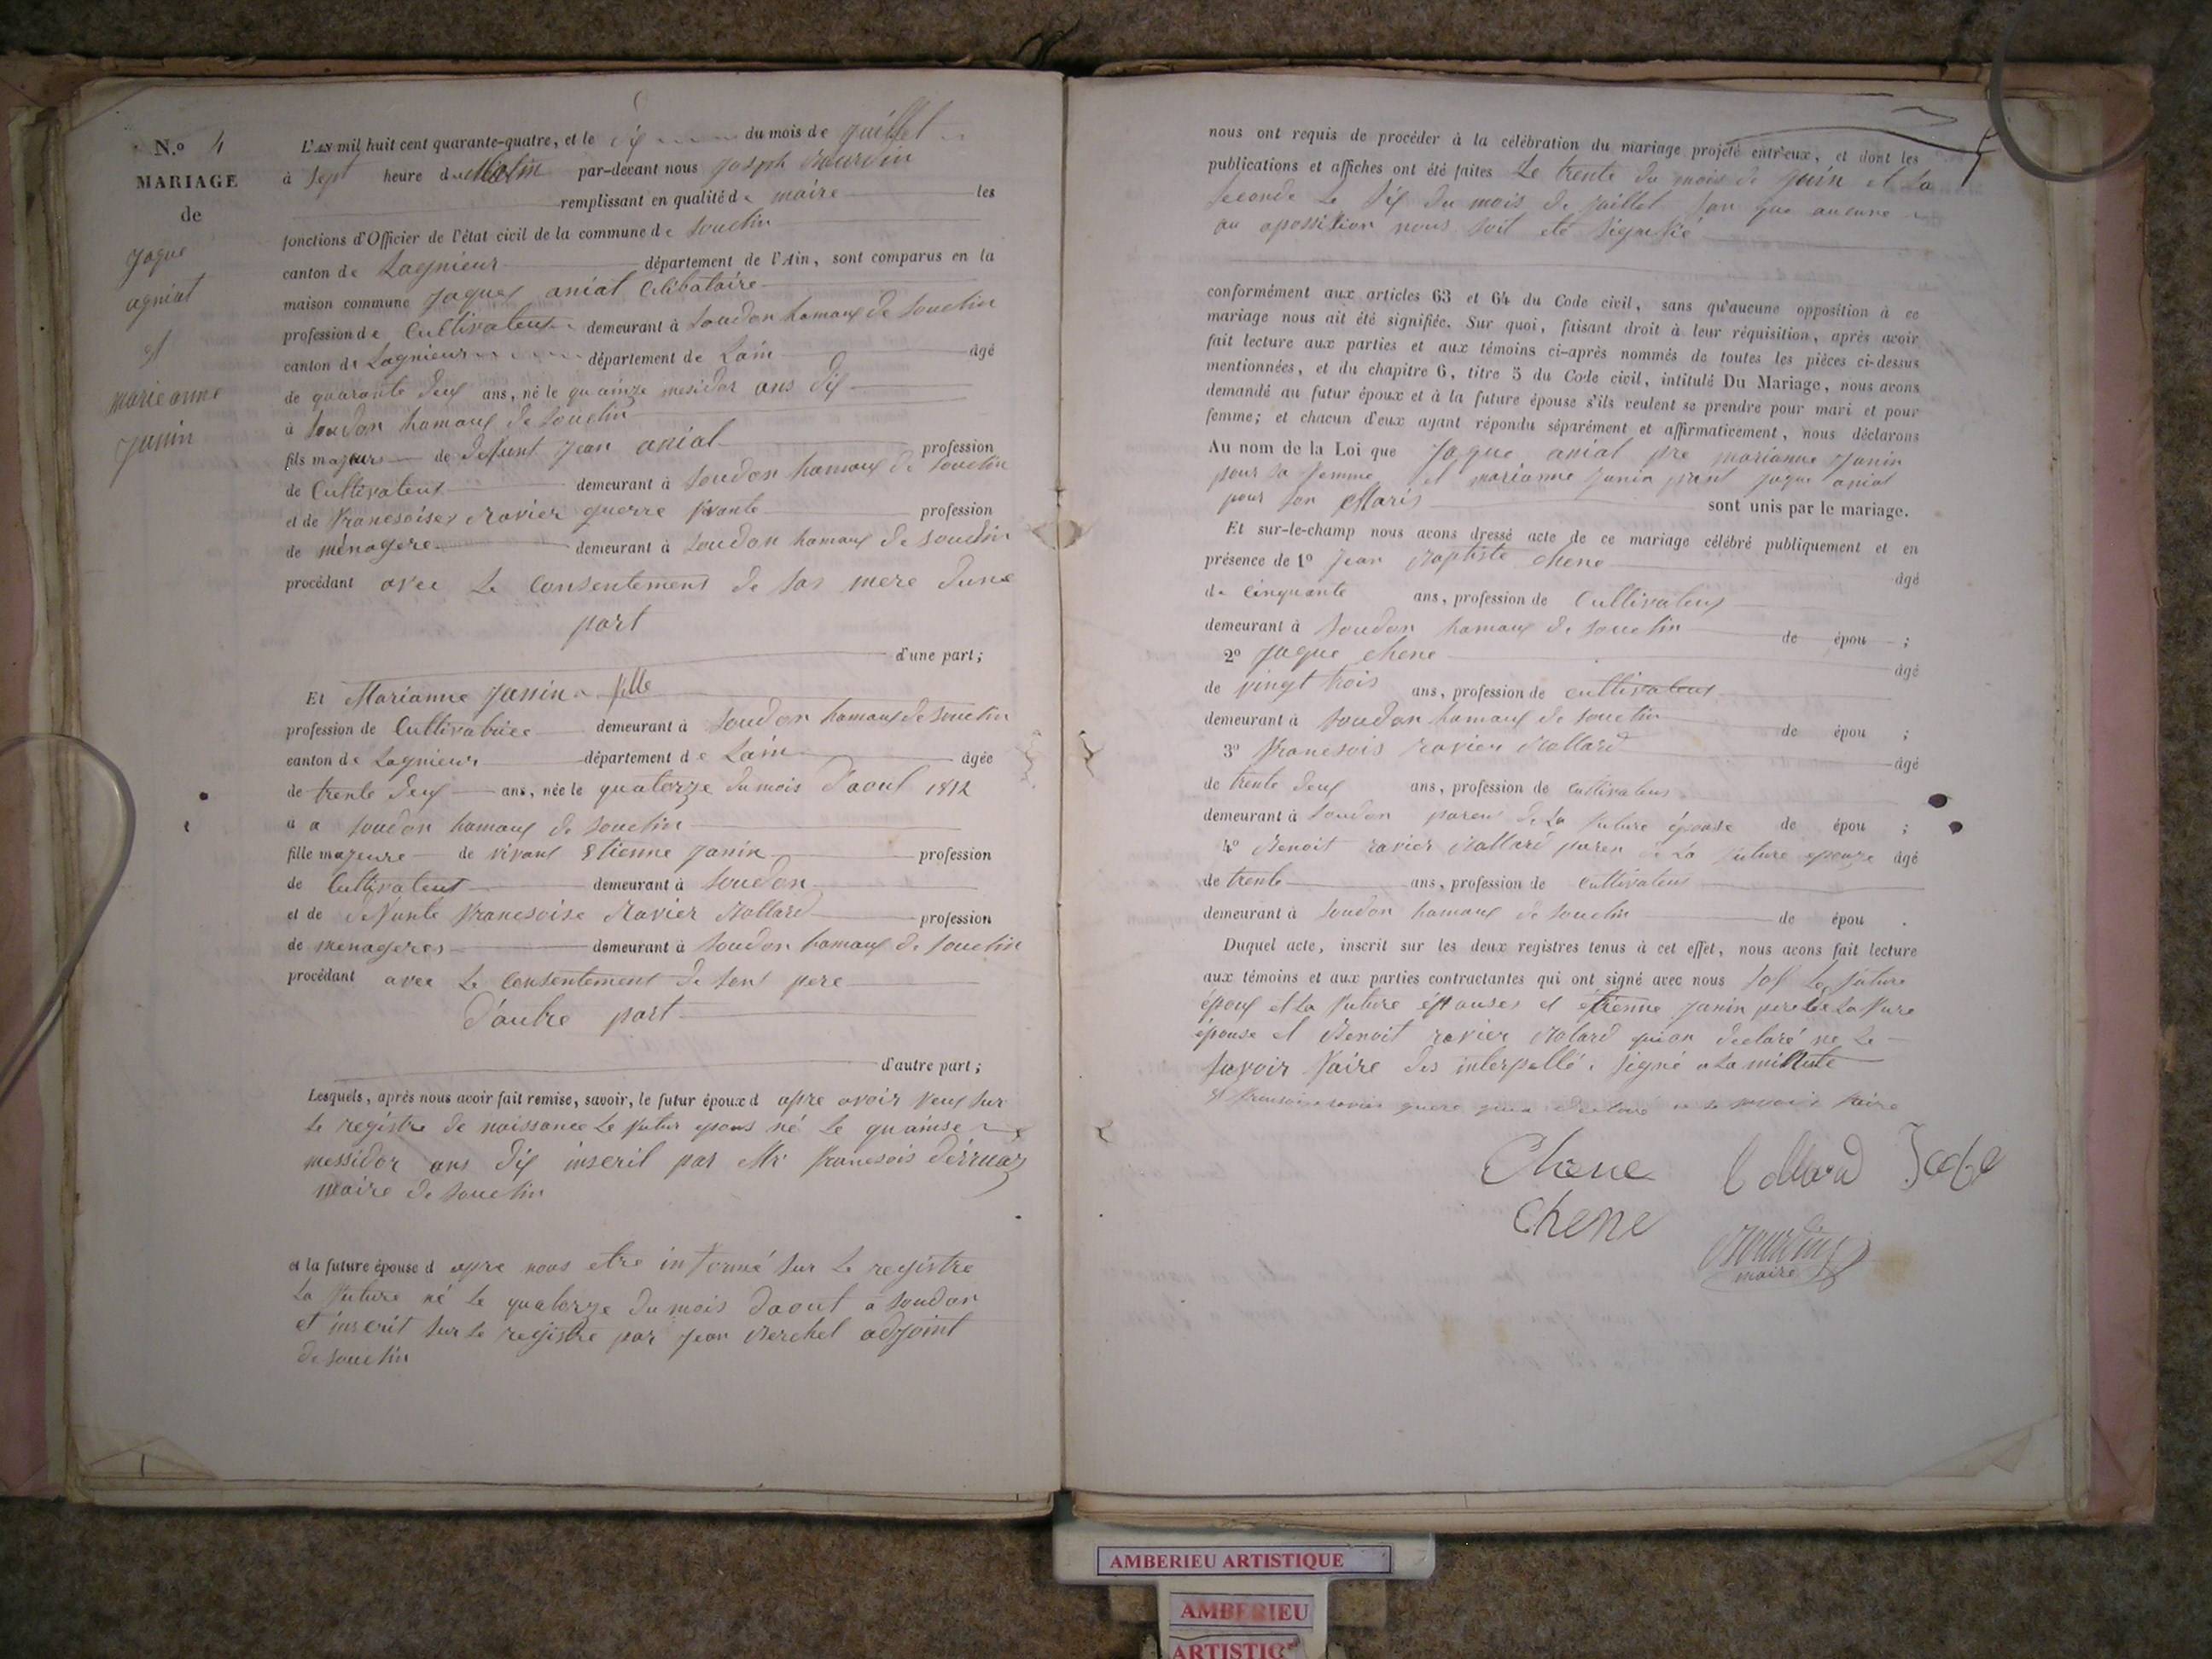 N.o 4
MARIAGE
de
jaque
agniat
et
marieanne
janin
L'AN mil huit cent quarante-quatre, et le dix du mois de juillet
à sept heure du Matin par-devant nous joseph Bourdin
remplissant en qualité de maire les
fonctions d'Officier de l'état civil de la commune de souclin
canton de Lagnieux département de l'Ain, sont comparus en la
maison commune jaques aniat Célibataire
profession de Cultivateur demeurant à soudon hamaux de souclin
canton de Lagnieux département de Lain âgé
de quarante deux ans, né le quainze mesidor ans dix
à soudon hamaux de souclin
fils majeurs de defunt jean aniat profession
de Cultivateur demeurant à soudon hamaux de souclin
et de francsoises Ravier guerre vivante profession
de ménagere demeurant à soudon hamaux de souclin
procédant avec Le Consentement de sas mere dune
part
d'une part;
Et Marianne janin fille
profession de Cultivatrice demeurant à soudon hamaux de souclin
canton de Lagnieux département de Lain âgée
de trente deux ans, née le quatorze du mois daout 1812
à a soudon hamaux de souclin
fille majeure de vivant Etienne janin profession
de Cultivateur demeurant à soudon
et de defunte francsoise Ravier Mollard profession
de menageres demeurant à soudon hamaux de souclin
procédant avec Le Consentement de sont pere
d'autre part
d'autre part;
Lesquels, après nous avoir fait remise, savoir, le futur époux d apre avoir veux sur
Le régistre de naissance Le futur epous né Le quainse
messidor ans dix inscrit par Mr francsois
maire de souclin
et la future épouse d apre nous etre informé sur Le registre
La future né Le quatorze du mois daout a soudon
et inscrit sur Le registre par jean Berchet adjoint
de souclin
nous ont requis de procéder à la célébration du mariage projeté entr'eux, et dont les
publications et affiches ont été faites Le trente du mois de juin et La
seconde Le dix du mois de juillet san que aucune
au opossition nous soit eté signifié
conformément aux articles 63 et 64 du Code civil, sans qu'aucune opposition à ce
mariage nous ait été signifiée. Sur quoi, faisant droit à leur réquisition, après avoir
fait lecture aux parties et aux témoins ci-après nommés de toutes les pièces ci-dessus
mentionnées, et du chapitre 6, titre 5 du Code civil, intitulé Du Mariage, nous avons
demandé au futur époux et à la future épouse s'ils veulent se prendre pour mari et pour
femme; et chacun d'eux ayant répondu séparément et affirmativement, nous déclarons
Au nom de la Loi que jaque aniat pre marianne janin
pour sa femme et marianne janin prent jaque aniat
pour son Maris sont unis par le mariage.
Et sur-le-champ nous avons dressé acte de ce mariage célébré publiquement et en
présence de 1o jean Baptiste chene âgé
de Cinquante ans, profession de Cultivateur
demeurant à soudon hamaux de souclin de épou ;
2o jaque chene âgé
de vingt trois ans, profession de cultivateur
demeurant à soudon hamaux de souclin de épou ;
3o francsois ravier Mollard âgé
de trente deux ans, profession de cultivateur
demeurant à soudon paren de La future épouse de épou ;
4o Benoit ravier Mollard paren de La future epouze âgé
de trente ans, profession de cultivateur
demeurant à soudon hamaux de souclin de épou .
Duquel acte, inscrit sur les deux registres tenus à cet effet, nous avons fait lecture
aux témoins et aux parties contractantes qui ont signé avec nous sof Le future
époux et La future épouses et étienne janin pere de La fure
épouse et Benoit ravier Molard quion declaré ne Le
savoir faire des interpellé signé a La minute
et fransoise ravier guere qui a declaré ne Le savoir faire
Chene Collard
Chene Bourdin
maire
AMBERIEU ARTISTIQUE
AMBERIEU
ARTISTIQ